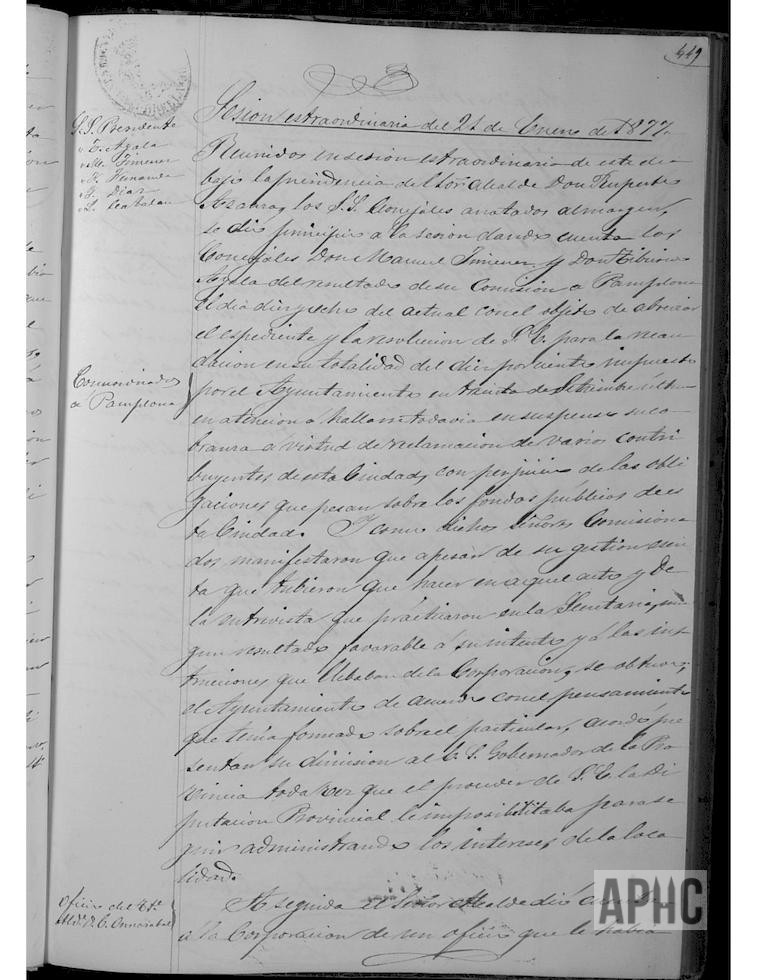 449
Sesion estraordinaria del 21 de Enero de 1877.
S.S. Presidente
" T. Ayala
" M. Jimenez
" Diaz
" L. Catalan
Reunidos en sesion estraordinaria de este dia
bajo la presidencia del Sor. Alcalde Don Ruperto
los S.S. Concejales anotados al margen,
se dió principio a la sesion dando cuenta los
Concejales Don Manuel Jimenez y Don Tiburcio
Ayala del resultado de su Comision a Pamplona
el dia diez y ocho del actual con el objeto de abreviar
el espediente y la resolucion de S. E. para la recau
dacion en su totalidad del diez por ciento impuesto
Comisionados
a Pamplona
por el Ayuntamiento en treinta de Setiembre último
en atencion á hallarse todavia en suspenso su co
branza á virtud de reclamacion de varios contri
buyentes de esta Ciudad, con perjuicio de las obli
gaciones que pesan sobre los fondos públicos de es
ta Ciudad. Y como dichos Señores Comisiona
dos manifestaron que apesar de su gestion
que tubieron que hacer en aquel acto y de
la entrevista que practicaron en la Secretaria, nin
gun resultado favorable á su intento y á las ins
trucciones que llebaban de la Corporacion, se obtuvo;
el Ayuntamiento de acuerdo con el pensamiento
que tenia formado sobre el particular, acordó pre
sentar su dimision al S. Gobernador de la Pro
vincia toda vez que el proceder de S. E. la Di
putacion Provincial le imposibilitaba para se
guir administrando los intereses de la loca
lidad.
Oficio del
A seguida el Señor Alcalde dió cuenta
a la Corporacion de un oficio que le habia
APHC